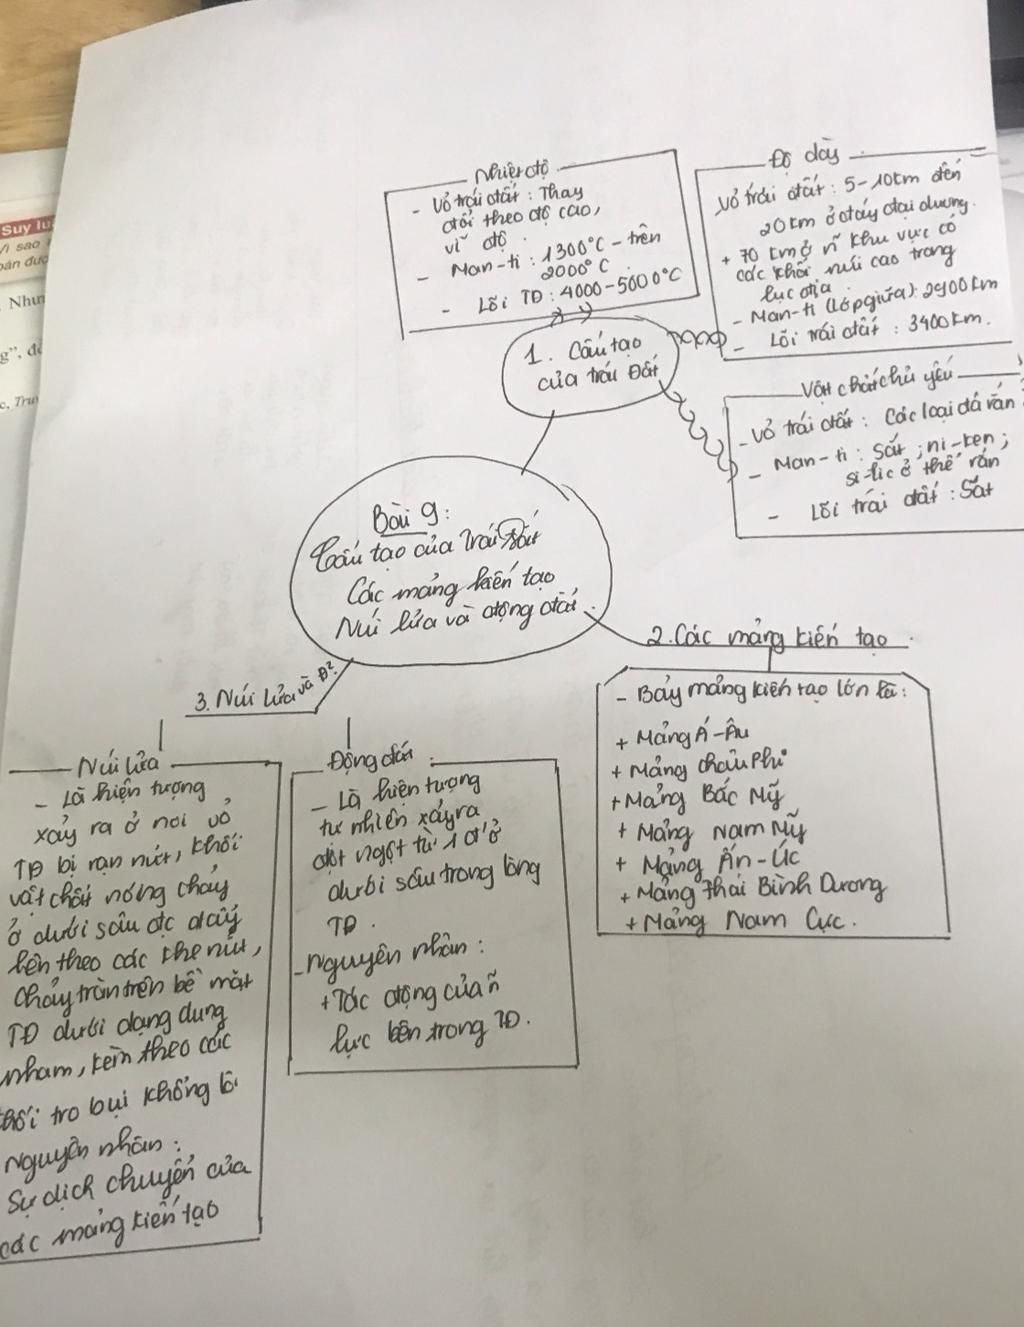 Suy lu
Vì sao
bán đượ
Nhưn
g", đó
c, Tru
Nhiệt độ
- Vỏ trái đất : Thay
đổi theo độ cao,
vĩ độ.
- Man-ti : 1300°C - trên
2000°C
- Lõi TĐ : 4000-5000°C
Độ dày
Vỏ trái đất : 5-10km đến
20km ở đáy đại dương.
+ 70 km ở ~ khu vực có
các khối núi cao trong
lục địa.
- Man-ti (Lớp giữa) : 2900km
- Lõi trái đất : 3400km.
1. Cấu tạo
của trái Đất
Vật chất chủ yếu
- Vỏ trái đất : Các loại đá rắn
- Man-ti : sắt ; ni-ken ;
si-lic ở thể rắn
- Lõi trái đất : Sắt
Bài 9:
Cấu tạo của Trái Đất
Các mảng kiến tạo
Núi lửa và động đất.
2. Các mảng kiến tạo.
- Bảy mảng kiến tạo lớn là:
+ Mảng Á-Âu
+ Mảng châu Phi
+ Mảng Bắc Mỹ
+ Mảng Nam Mỹ
+ Mảng Ấn-Úc
+ Mảng Thái Bình Dương
+ Mảng Nam Cực.
3. Núi lửa và Đ².
Núi lửa
- Là hiện tượng
xảy ra ở nơi vỏ
TĐ bị rạn nứt, khối
vật chất nóng chảy
ở dưới sâu đc đẩy
lên theo các khe nứt,
chảy tràn trên bề mặt
TĐ dưới dạng dung
nham, kèm theo các
khối tro bụi khổng lồ
Nguyên nhân :
Sự dịch chuyển của
các mảng kiến tạo
Động đất :
- Là hiện tượng
tự nhiên xảy ra
đột ngột từ 1 ở
dưới sâu trong lòng
TĐ.
- Nguyên nhân :
+ Tác động của ~
lực bên trong TĐ.